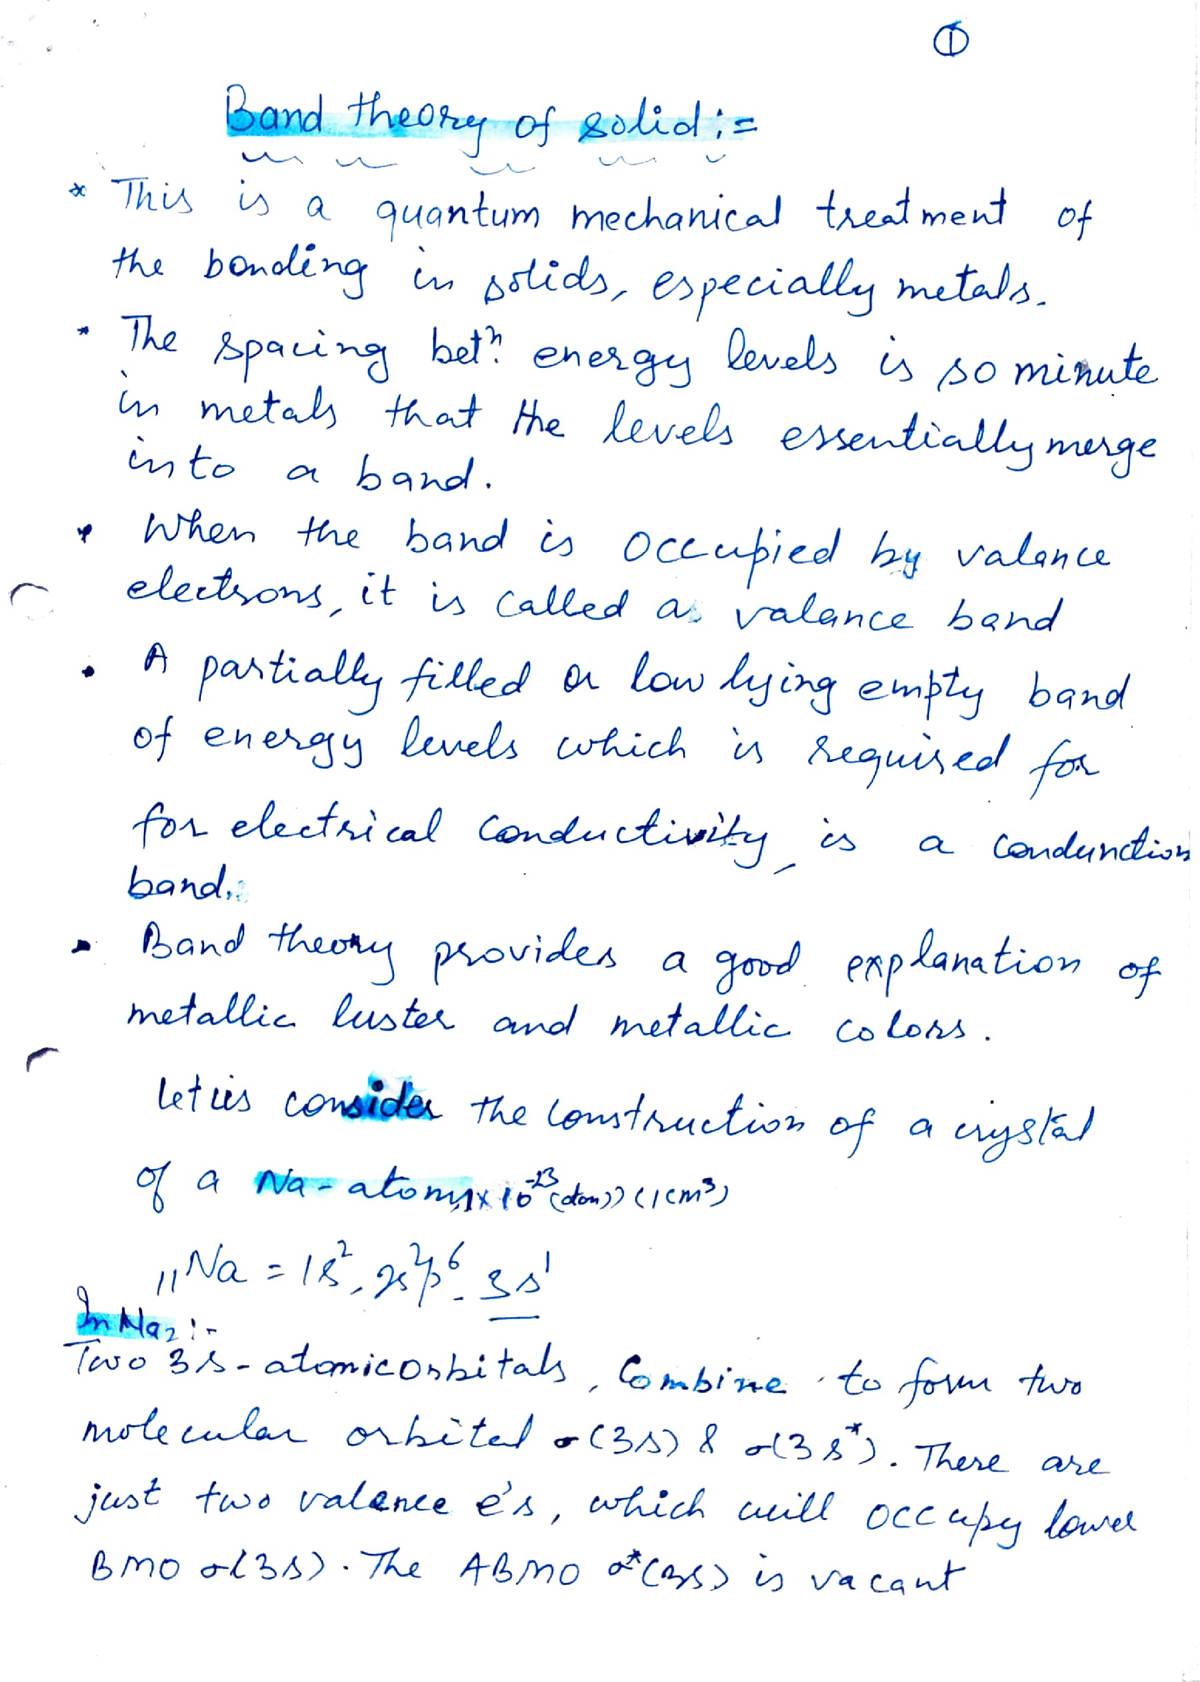 ①
Band theory of solid :=
* This is a quantum mechanical treatment of
the bonding in solids, especially metals.
* The spacing betⁿ. energy levels is so minute
in metals that the levels essentially merge
into a band.
* When the band is occupied by valance
electrons, it is called as valance band
• A partially filled or low lying empty band
of energy levels which is required for
for electrical conductivity, is a condunction
band.
• Band theory provides a good explanation of
metallic luster and metallic colors.
Let us consider the construction of a crystal
of a Na-atom, 1×10⁻²³ (1cm³)
₁₁Na = 1s², 2s²p⁶. 3s¹
In Na₂ :-
Two 3s-atomic orbitals, Combine to form two
molecular orbital σ(3s) & σ(3s*). There are
just two valance e's, which will occupy lower
BMO σ(3s). The ABMO σ*(3s) is vacant